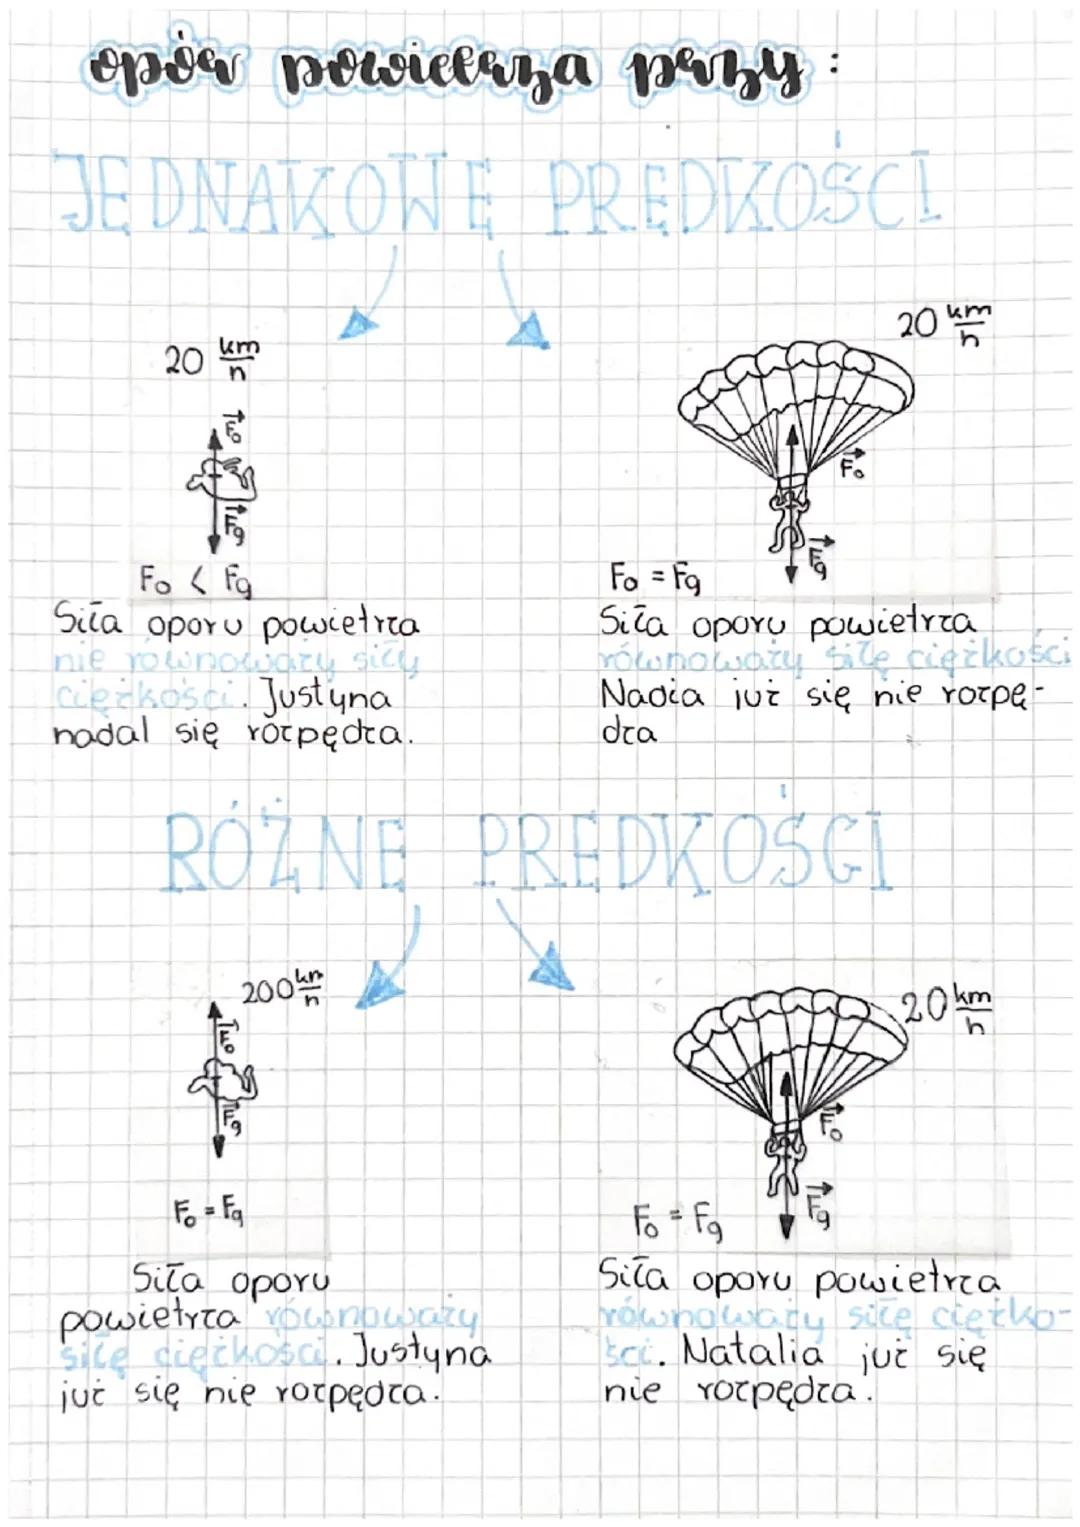 opór powietrza przy:
JEDNAKOWE PRĘDKOŚCI
20 km/h
20 km/h
Fo
Fg
Fo
Fg
Fo < Fg
Fo = Fg
Siła oporu powietrza
nie równoważy siły
ciężkości. Justyna
nadal się rozpędza.
Siła oporu powietrza
równoważy siłę ciężkości
Nadia już się nie rozpę-
dza
RÓŻNE PRĘDKOŚCI
200 km/h
20 km/h
Fo
Fg
Fo
Fg
Fo = Fg
Fo = Fg
Siła oporu
powietrza równoważy
siłę ciężkości. Justyna
już się nie rozpędza.
Siła oporu powietrza
równoważy siłę ciężko-
ści. Natalia już się
nie rozpędza.